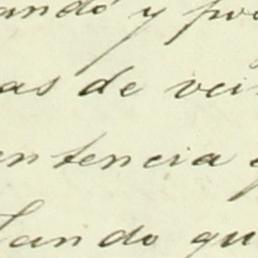 ando y pro
as de vei
entencia q
tando qu